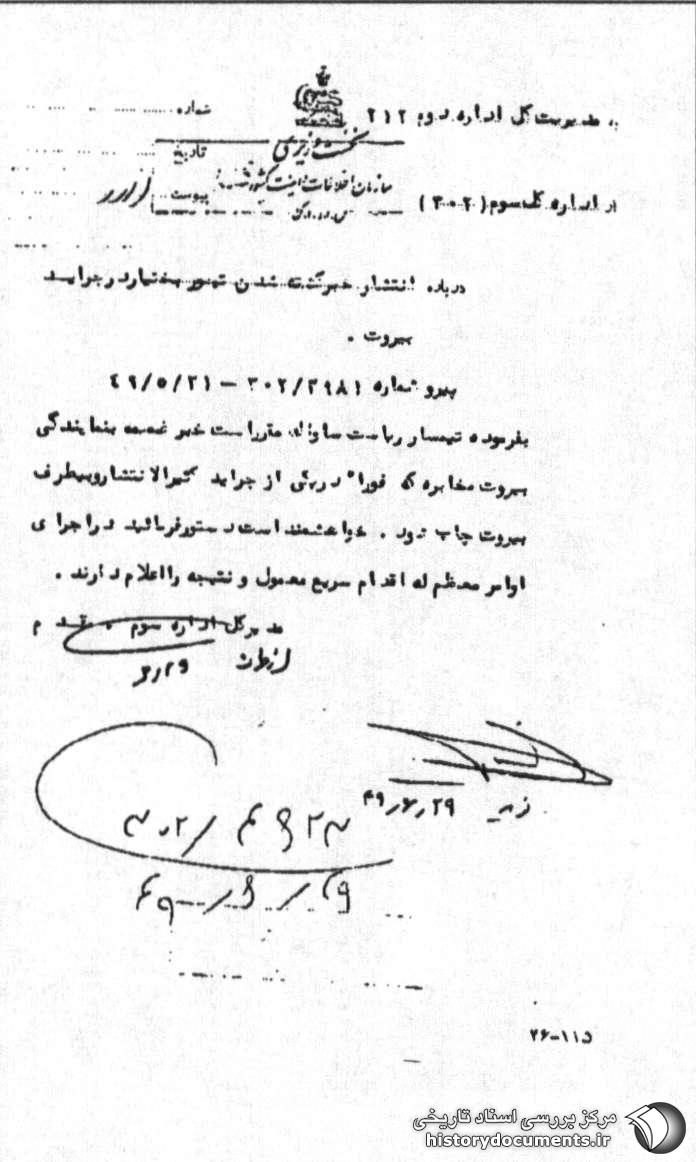 به مدیریت کل اداره دوم ۲۱۲
شماره
نخست وزیری
تاریخ
سازمان اطلاعات و امنیت کشور
پیوست
از اداره کل سوم (۳۰۲)
س.ا.و.ا.ک
درباره انتشار خبر کشته شدن تیمور بختیار در جراید
بیروت .
پیرو شماره ۳۰۲/۳۹۸۱ – ۴۹/۵/۳۱
بفرموده تیمسار ریاست ساواک مقرر است خبر ضمیمه بنمایندگی
بیروت مخابره که فورا" در یکی از جراید کثیرالانتشار و بیطرف
بیروت چاپ شود . خواهشمند است دستور فرمائید در اجرای
اوامر معظم له اقدام سریع معمول و نتیجه را اعلام دارند .
مدیر کل اداره سوم . مقدم
۴۹٫۶٫۲۹
۲۶-۱۱۵
مرکز بررسی اسناد تاریخی
historydocuments.ir